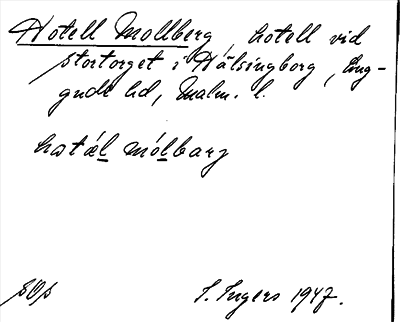 Hotell Mollberg, hotell vid
stortorget i Hälsingborg, Lug-
gude hd, Malm. l.
hɑtä́l mólbarj
sOs
S. Ingers 1947.